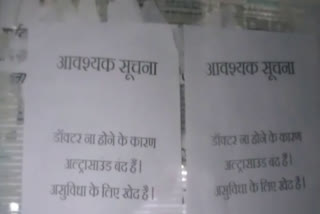 आवश्यक सूचना
डॉक्टर ना होने के कारण
अल्ट्रासाउड बंद हैं।
असुविधा के लिए खेद हैं।
आवश्यक सूचना
डॉक्टर ना होने के कारण
अल्ट्रासाउड बंद हैं।
असुविधा के लिए खेद हैं।